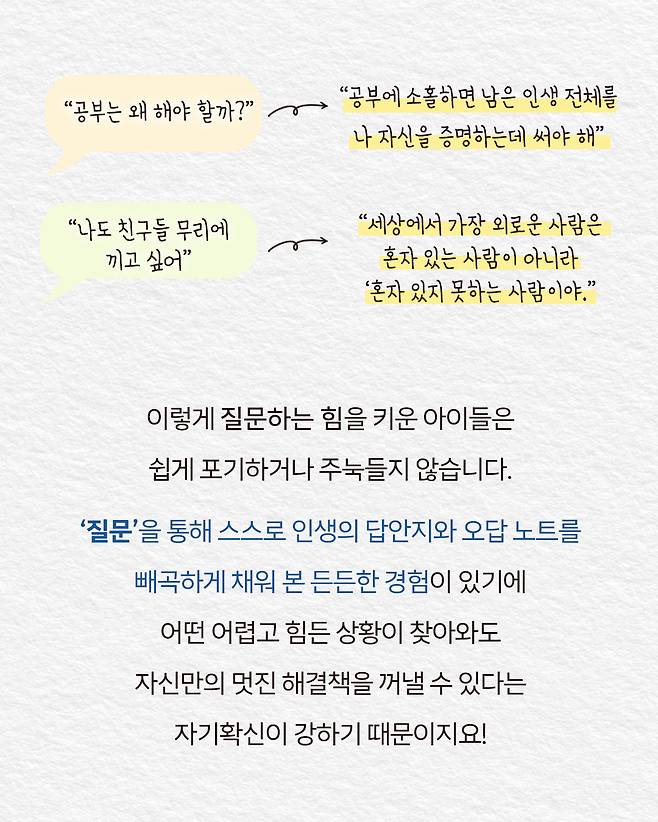 “공부는 왜 해야 할까?”
“공부에 소홀하면 남은 인생 전체를
나 자신을 증명하는데 써야 해”
“나도 친구들 무리에
끼고 싶어”
“세상에서 가장 외로운 사람은
혼자 있는 사람이 아니라
‘혼자 있지 못하는 사람이야.”
이렇게 질문하는 힘을 키운 아이들은
쉽게 포기하거나 주눅들지 않습니다.
‘질문’을 통해 스스로 인생의 답안지와 오답 노트를
빼곡하게 채워 본 든든한 경험이 있기에
어떤 어렵고 힘든 상황이 찾아와도
자신만의 멋진 해결책을 꺼낼 수 있다는
자기확신이 강하기 때문이지요!